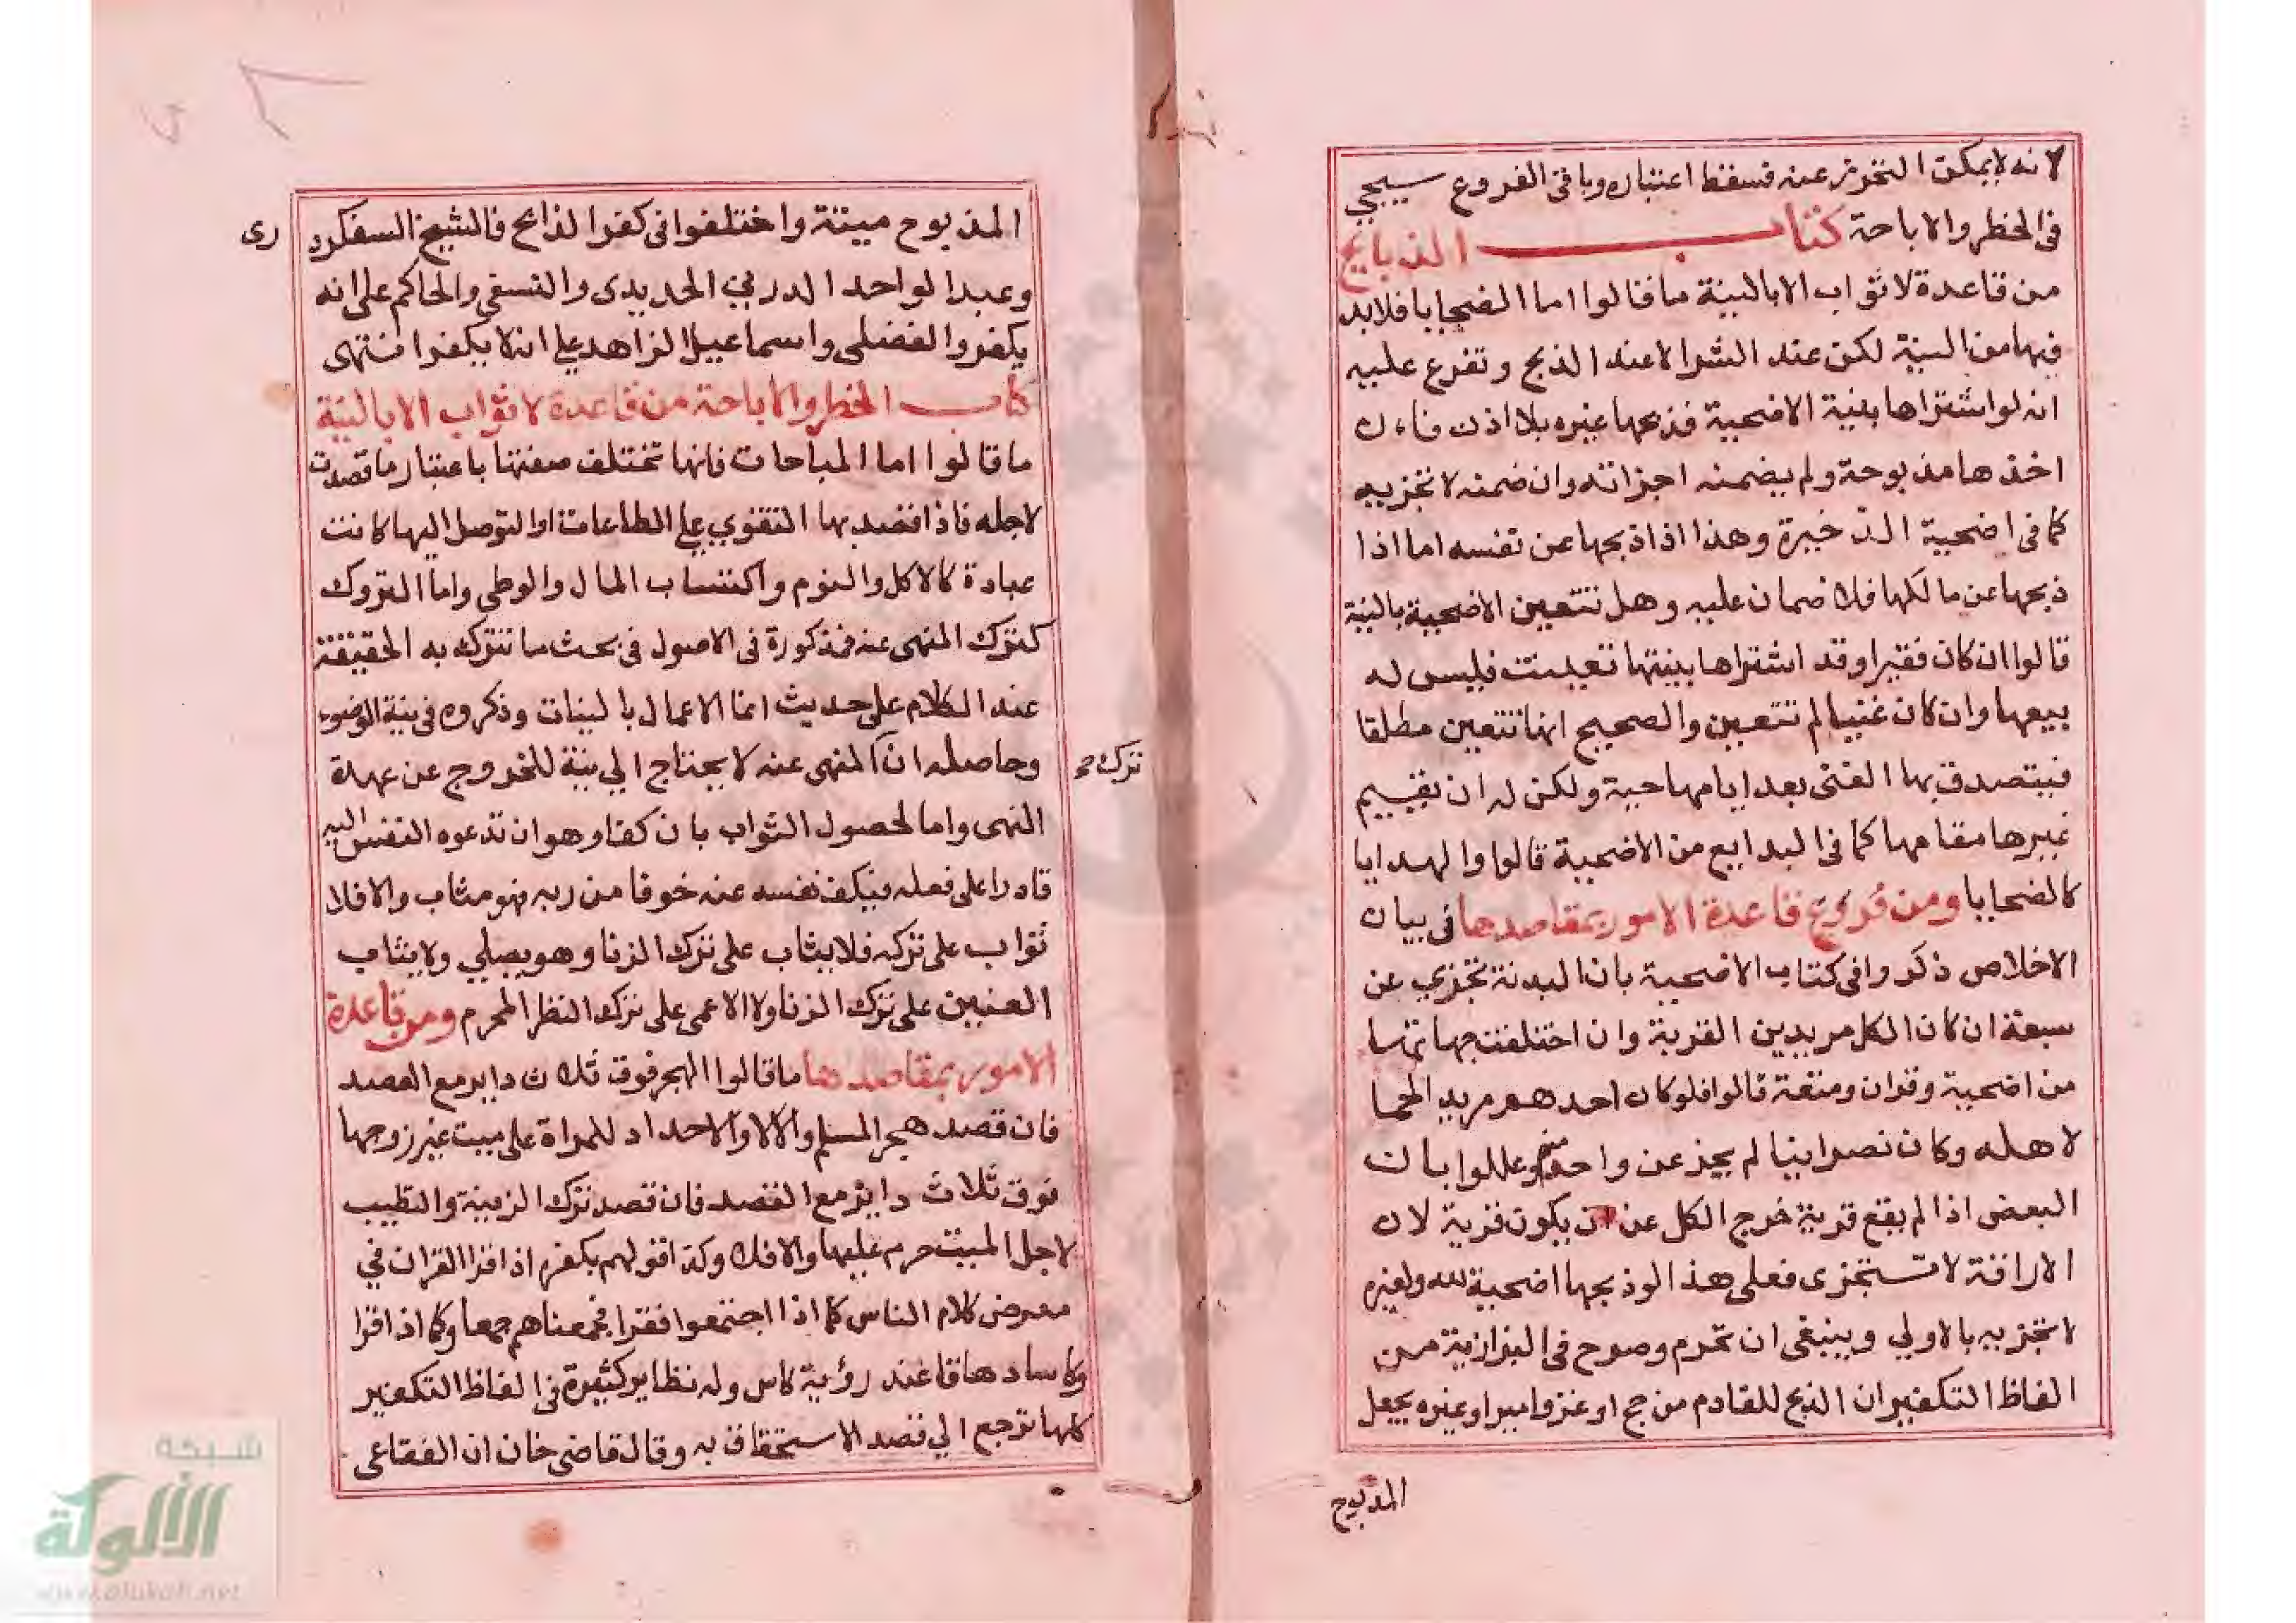 لانه لا يمكن التحرز عنه فسقط اعتباره وباقى الفروع سيجيي
فى الحظر والاباحة كتاب الذبايح
من قاعدة لا ثواب الا بالنية ما قالوا اما الضحايا فلا بد
فيها من النية لكن عند الشرا لا عند الذبح وتفرع عليه
انه لو اشتراها بنية الاضحية فذبحها غيره بلا اذن فان
اخذها مذبوحة ولم يضمنه اجزاته وان ضمنه لا تجزيه
كما فى اضحية الذخيرة وهذا اذا ذبحها عن نفسه اما اذا
ذبحها عن مالكها فلا ضمان عليه وهل تتعين الاضحية بالنية
قالوا ان كان فقيرا وقد اشتراها بنيتها تعينت فليس له
بيعها وان كان غنيا لم تتعين والصحيح انها تتعين مطلقا
فيتصدق بها الغنى بعد ايامها حية ولكن له ان يقيم
غيرها مقامها كما فى البدايع من الاضحية قالوا والهدايا
كالضحايا ومن فروع قاعدة الامور بمقاصدها فى بيان
الاخلاص ذكروا فى كتاب الاضحية بان البدنة تجزي عن
سبعة ان كان الكل مريدين القربة وان اختلفت جهاتها
من اضحية وقران ومتعة قالوا فلو كان احدهم مريد الحما
لاهله وكان نصرانيا لم يجز عن واحد منهم وعللوا بان
البعض اذا لم يقع قربة خرج الكل عن ان يكون قربة لان
الاراقة لا تتجزى فعلى هذا لو ذبحها اضحية لله ولغيره
لا تجزيه بالاولي وينبغى ان تحرم وصرح فى البزازية من
الفاظ التكفير ان الذبح للقادم من حج او غزو امير او غيره يجعل
المذبوح
المذبوح ميتة واختلفوا فى كفر الذابح فالشيخ السفكرد
رى
وعبد الواحد الدربي الحديدى والنسفى والحاكم على انه
يكفر والفضلى واسماعيل الزاهد على انه لا يكفر انتهى
كتاب الحظر والاباحة من قاعدة لا ثواب الا بالنية
ما قالوا اما المباحات فانها تختلف صفتها باعتبار ما قصدت
لاجله فاذا قصد بها التقوي علي الطاعات او التوصل اليها كانت
عبادة كالاكل والنوم واكتساب المال والوطى واما التروك
كترك المنهى عنه فمذكورة فى الاصول فى بحث ما تترك به الحقيقة
عند الكلام على حديث انما الاعمال بالنيات وذكروه فى نية الوضوء
وحاصله ان المنهى عنه لا يحتاج الي نية للخروج عن عهدة
ترك صح
النهى واما لحصول الثواب بان كفا وهو ان تدعوه النفس اليه
قادرا على فعله فيكف نفسه عنه خوفا من ربه فهو مثاب والا فلا
ثواب على تركه فلا يثاب على ترك الزنا وهو يصلي ولا يثاب
العنين على ترك الزنا ولا الاعمى على ترك النظر المحرم ومن قاعدة
الامور بمقاصدها ما قالوا الهجر فوق ثلاث داير مع القصد
فان قصد هجر المسلم والا لا والاحداد للمراة على ميت غير زوجها
فوق ثلاث داير مع القصد فان قصد ترك الزينة والتطيب
لاجل الميت حرم عليها والا فلا وكذا قولهم يكفر اذا قرا القران في
معرض كلام الناس كما اذا اجتمعوا فقرا فجمعناهم جمعا وكما اذا قرا
وكاسا دهاقا عند رؤية كاس وله نظاير كثيرة في الفاظ التكفير
كلها ترجع الي قصد الاستخفاف به وقال قاضى خان ان الفقاعى
شبكة
الألوكة
www.alukah.net